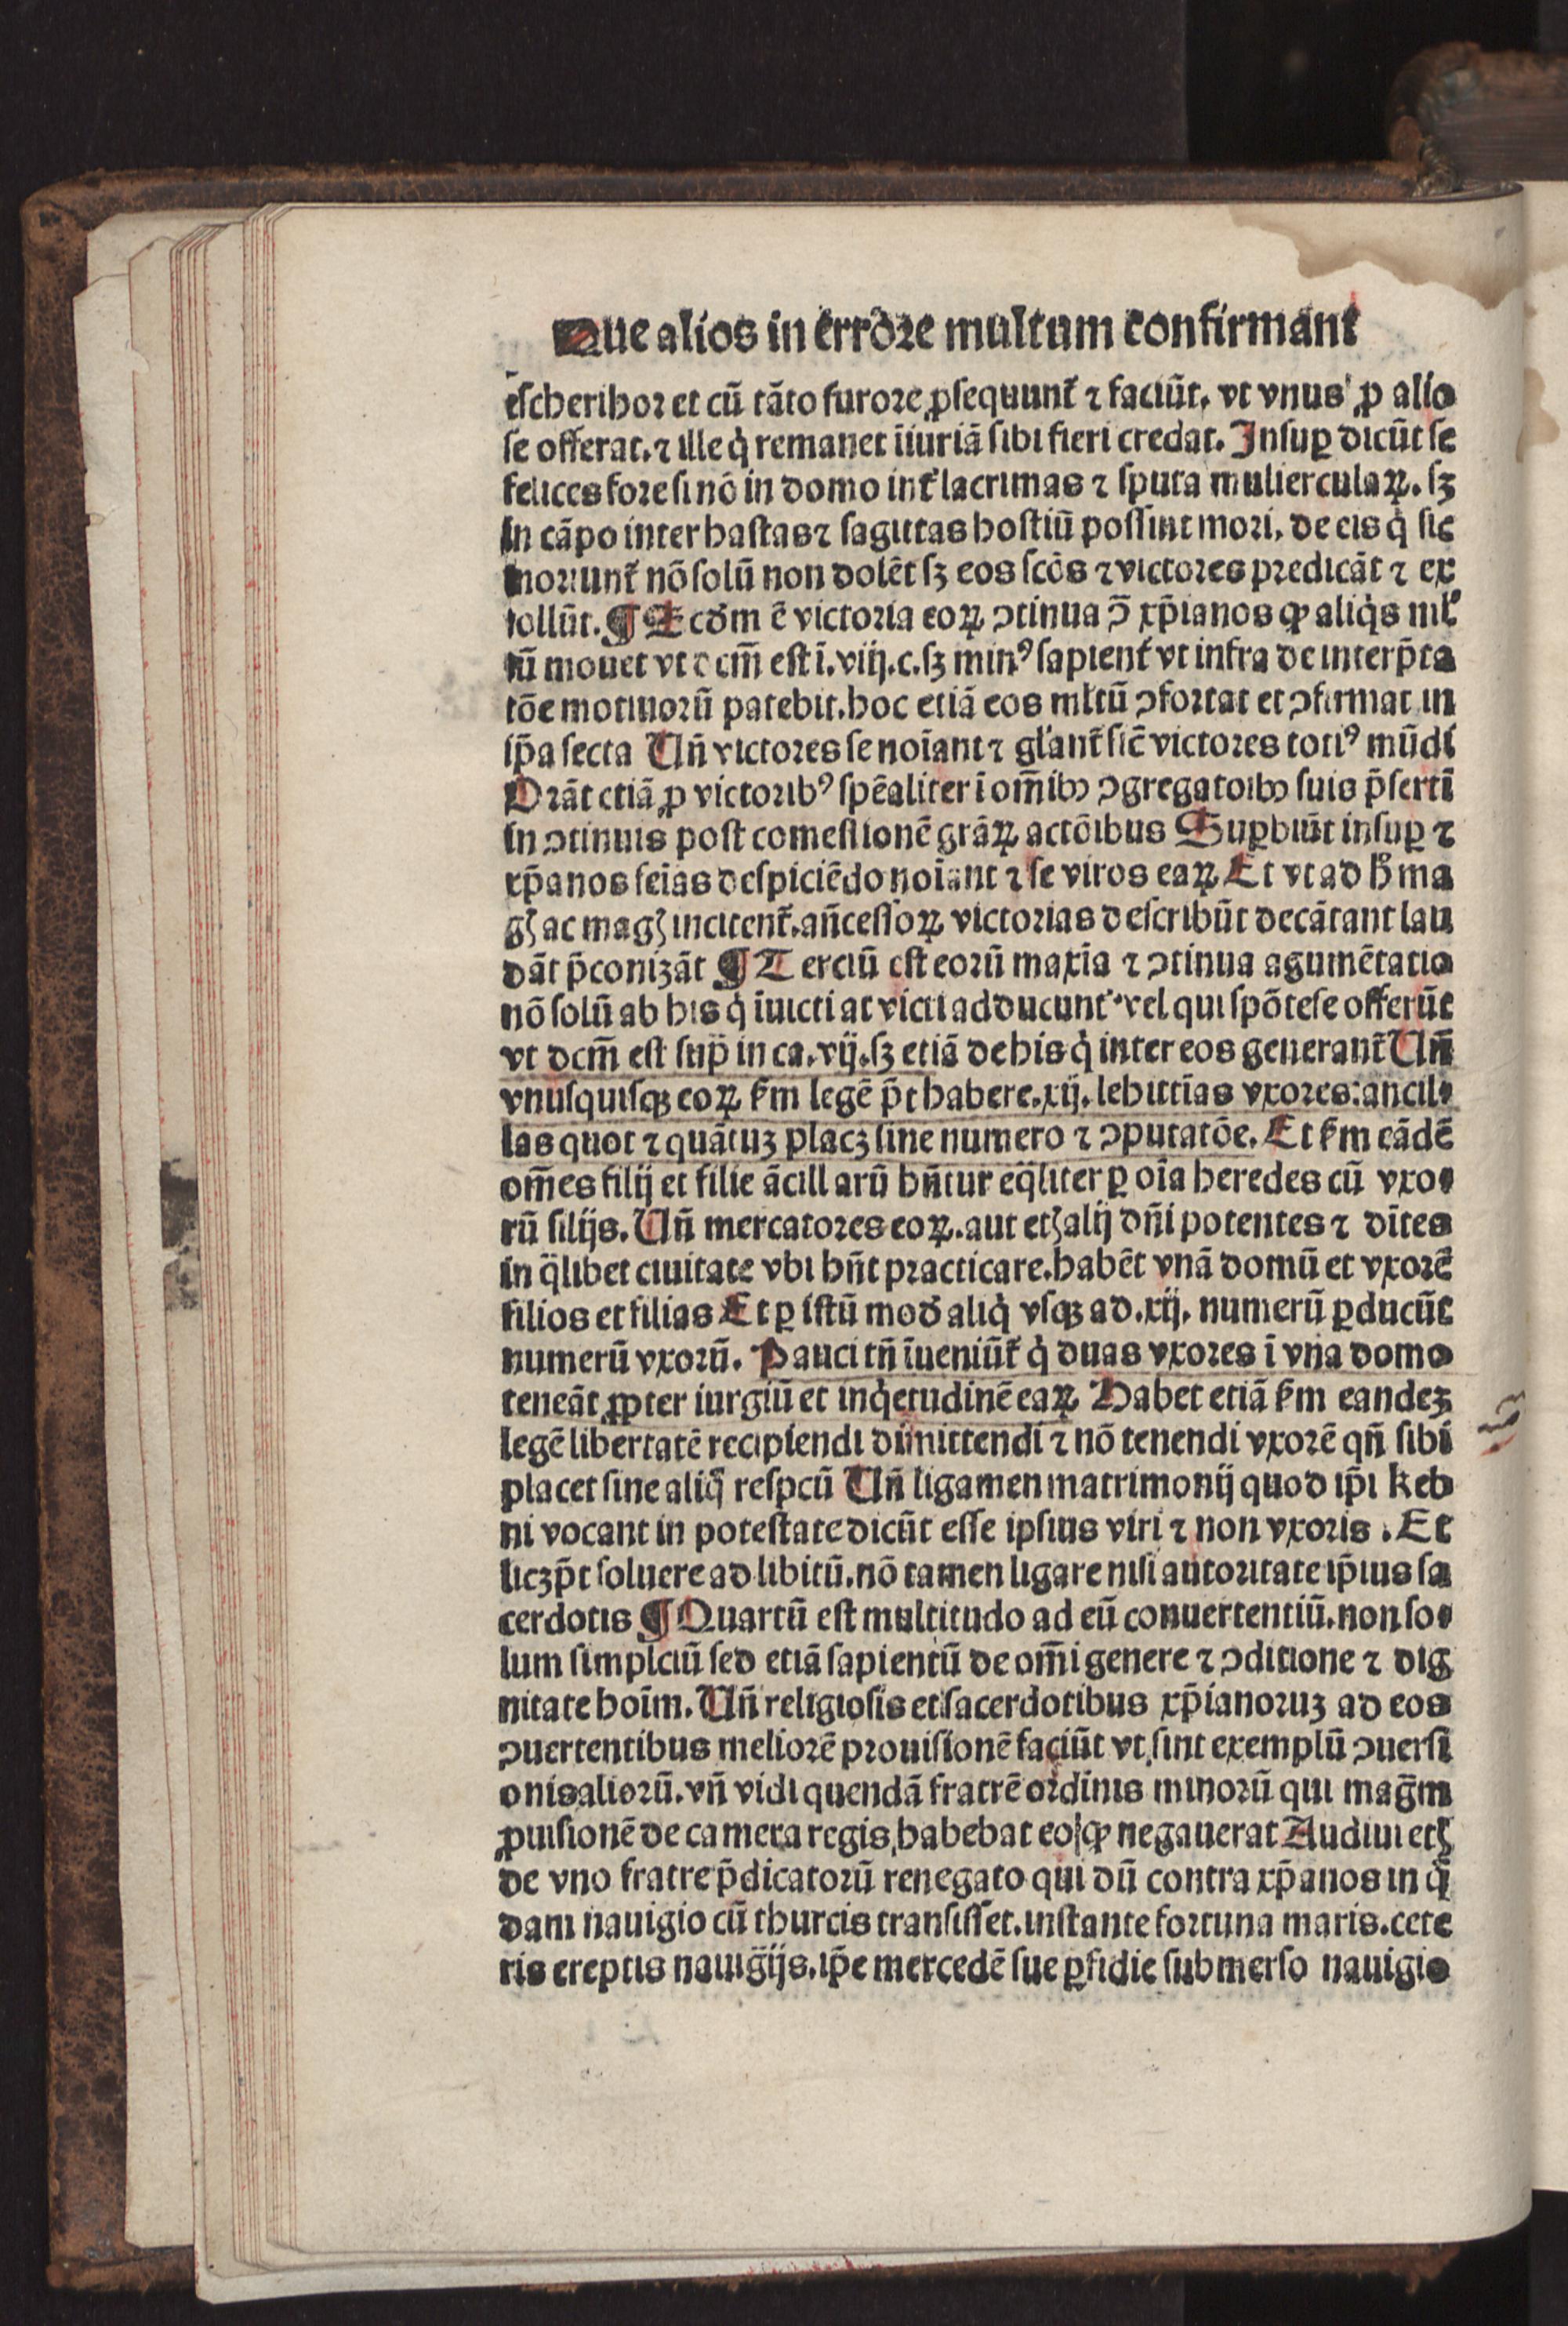 Que alios in errore multum confirmant
eſcheribor et cū tāto furore ꝓſequunt᷑ ⁊ faciūt. vt vnus ꝓ alio
ſe offerat. ⁊ ille q̇ remanet īiuriā ſibi fieri credat. Inſuꝑ dicūt ſe
felices fore ſi nō in domo int̛ lacrimas ⁊ ſputa mulierculaꝝ. ſꝫ
in cāpo inter haſtas ⁊ ſagittas hoſtiū poſſint mori. de eis q̇ ſic
moriunt᷑ nō ſolū non dolēt ſꝫ eos ſcōs ⁊ victores predicāt ⁊ ex
tollūt. ¶ Scd̄m ē victoria eoꝝ ꝯtinua ꝯ̄ xp̄ianos qꝫ aliq̇s ml̛
tū mouet vt dcm̄ eſt ī. viij. c. ſꝫ minꝰ ſapient̛ vt infra de interp̄ta
tōe motiuorū patebit. hoc etiā eos ml̛tū ꝯfortat et ꝯfirmat in
ip̄a ſecta Un̄ victores ſe noīant ⁊ gl̛ant᷑ ſic̄ victores totiꝰ mūdi
Orāt etiā ꝓ victoribꝰ ſpēaliter ī om̄ibꝫ ꝯgregatoībꝫ ſuis p̄ſertī
in ꝯtinuis poſt comeſtionē grāꝝ actōibus Suꝑbiūt inſuꝑ ⁊
xp̄anos feīas deſpiciēdo noīant ⁊ ſe viros eaꝝ Et vt ad h̛ ma
gꝭ ac magꝭ incitent᷑. an̄ceſſoꝝ victorias deſcribūt decātant lau
dāt p̄conizāt ¶ Terciū eſt eorū maxīa ⁊ ꝯtinua agumētatio
nō ſolū ab his q̇ īuicti at victi adducunt᷑ vel qui ſpōte ſe offerūt
vt dcm̄ eſt ſup̄ in ca. vij. ſꝫ etiā de his q̇ inter eos generant᷑ Un̄
vnuſquiſqꝫ eoꝝ ẜm legē p̄t habere. xij. lehittīas vxores: ancil⸗
las quot ⁊ quātuꝫ placꝫ ſine numero ⁊ ꝯputatōe. Et ẜm eādē
om̄es filij et filie ācillarū hn̄tur eq̄liter ꝑ oīa heredes cū vxo⸗
rū filijs. Un̄ mercatores eoꝝ. aut etꝭ alij dn̄i potentes ⁊ dītes
in q̄libet ciuitate vbi hn̄t practicare. habēt vnā domū et vxorē
filios et filias Et ꝑ iſtū mod̄ aliq̇ vſqꝫ ad. xij. numerū ꝑducūt
numerū vxorū. Pauci tn̄ īueniūt᷑ q̇ duas vxores ī vna domo
teneāt ꝓpter iurgiū et inq̇etudinē eaꝝ Habet etiā ẜm eandeꝫ
legē libertatē recipiendi dimittendi ⁊ nō tenendi vxorē qn̄ ſibi
placet ſine aliq̄ reſpcū Un̄ ligamen matrimonij quod ip̄i keb
ni vocant in poteſtate dicūt eſſe ipſius viri ⁊ non vxoris . Et
licꝫ p̄t ſoluere ad libitū. nō tamen ligare niſi autoritate ip̄ius ſa
cerdotis ¶ Quartū eſt multitudo ad eū conuertentiū. non ſo⸗
lum ſimplciū ſed etiā ſapientū de om̄i genere ⁊ ꝯditione ⁊ dig
nitate hoīm. Un̄ religioſis et ſacerdotibus xp̄ianoruꝫ ad eos
ꝯuertentibus meliorē prouiſionē faciūt vt ſint exemplū ꝯuerſi
onis aliorū. vn̄ vidi quendā fratrē ordinis minorū qui maḡm
ꝓuiſionē de camera regis habebat eo qꝫ negauerat Audiui etꝭ
de vno fratre p̄dicatorū renegato qui dū contra xp̄anos in q̄
dam nauigio cū thurcis tranſiſſet. inſtante fortuna maris. cete
ris ereptis nauig̈ijs. ip̄e mercedē ſue ꝑfidie ſubmerſo nauigio